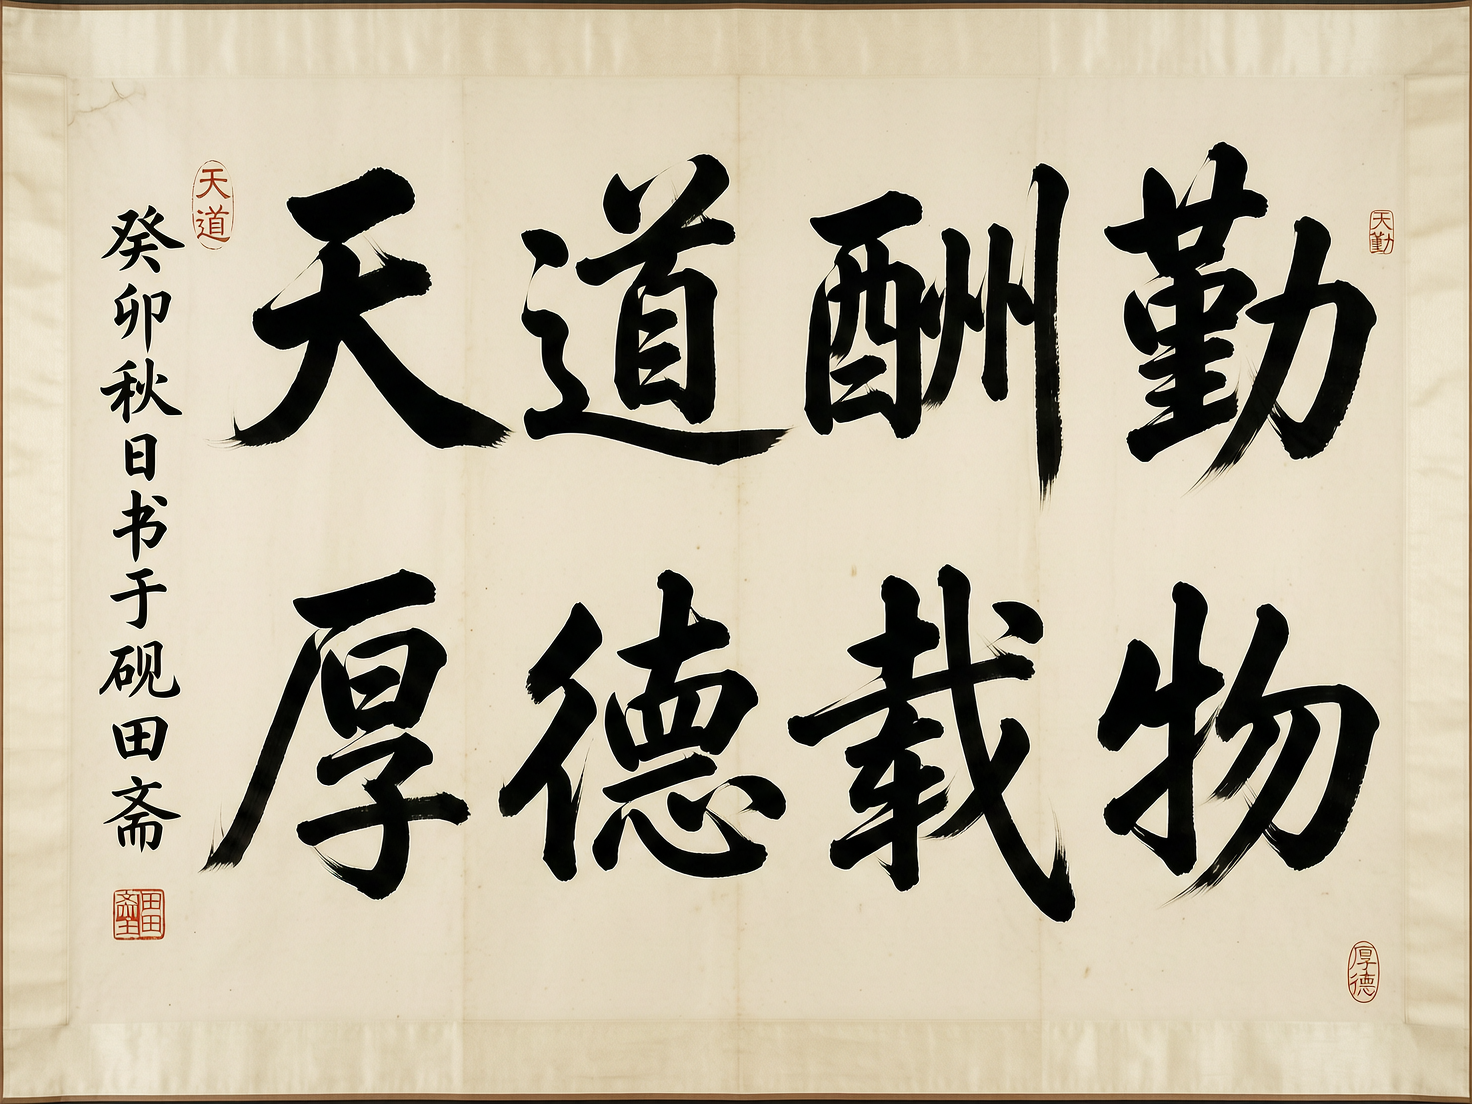 天道酬勤
厚德載物
癸卯秋日书于砚田斋
天道
天勤
厚德